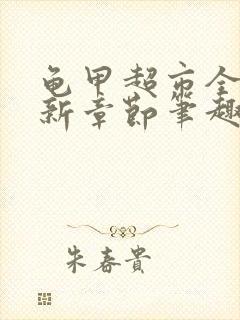 龟甲超市全
新章节笔趣
朱春贵